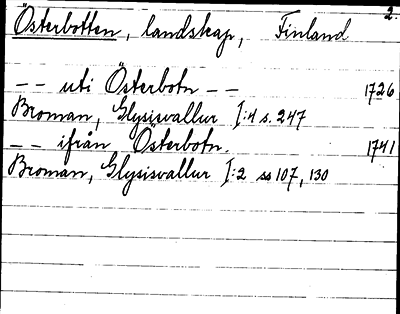 2.
Österbotten, landskap, Finland
-- uti Österbotn -- 1726
Broman, Glysisvallur I:4 s. 247
-- ifrån Österbotn. 1741
Broman, Glysisvallur I:2 ss 107, 130